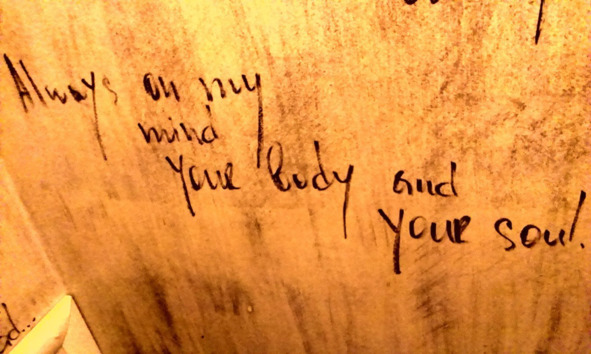 Always on my
mind
your body and
your soul.